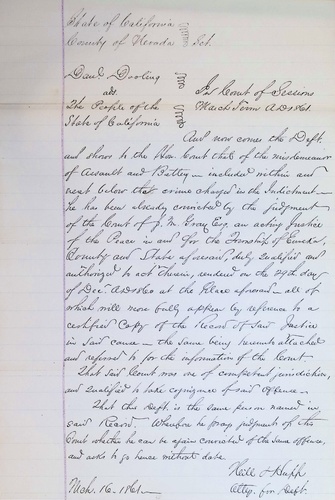 State of California
County of Nevada Sct.
Davd. Dooling
ads
The People of the
State of California
In Court of Sessions
March Term AD 1861.
And now comes the Deft.
and shows to the Hon. Court that of the misdemeanor
of Assault and Battery — included within and
next below that crime charged in the Indictment —
he has been already convicted by the judgment
of the Court of J. M. Gray Esq. an acting Justice
of the Peace in and for the Township of Eureka,
County and State aforesaid, duly qualified and
authorized to act therein, rendered on the 29th day
of Dec. AD 1860 at the Place aforesaid — all of
which will more fully appear by reference to a
certified Copy of the Record of said Justice
in said cause — the same being hereunto attached
and referred to for the information of the Court
That said Court was one of competent jurisdiction,
and qualified to take cognizance of said offense.
That this Deft. is the same person named in
said Record. Wherefore he prays judgment of this
Court whether he can be again convicted of the same offence,
and asks to go hence without date.
Mch. 16. 1861 —
Hill & Hupp
Attys. for Deft.